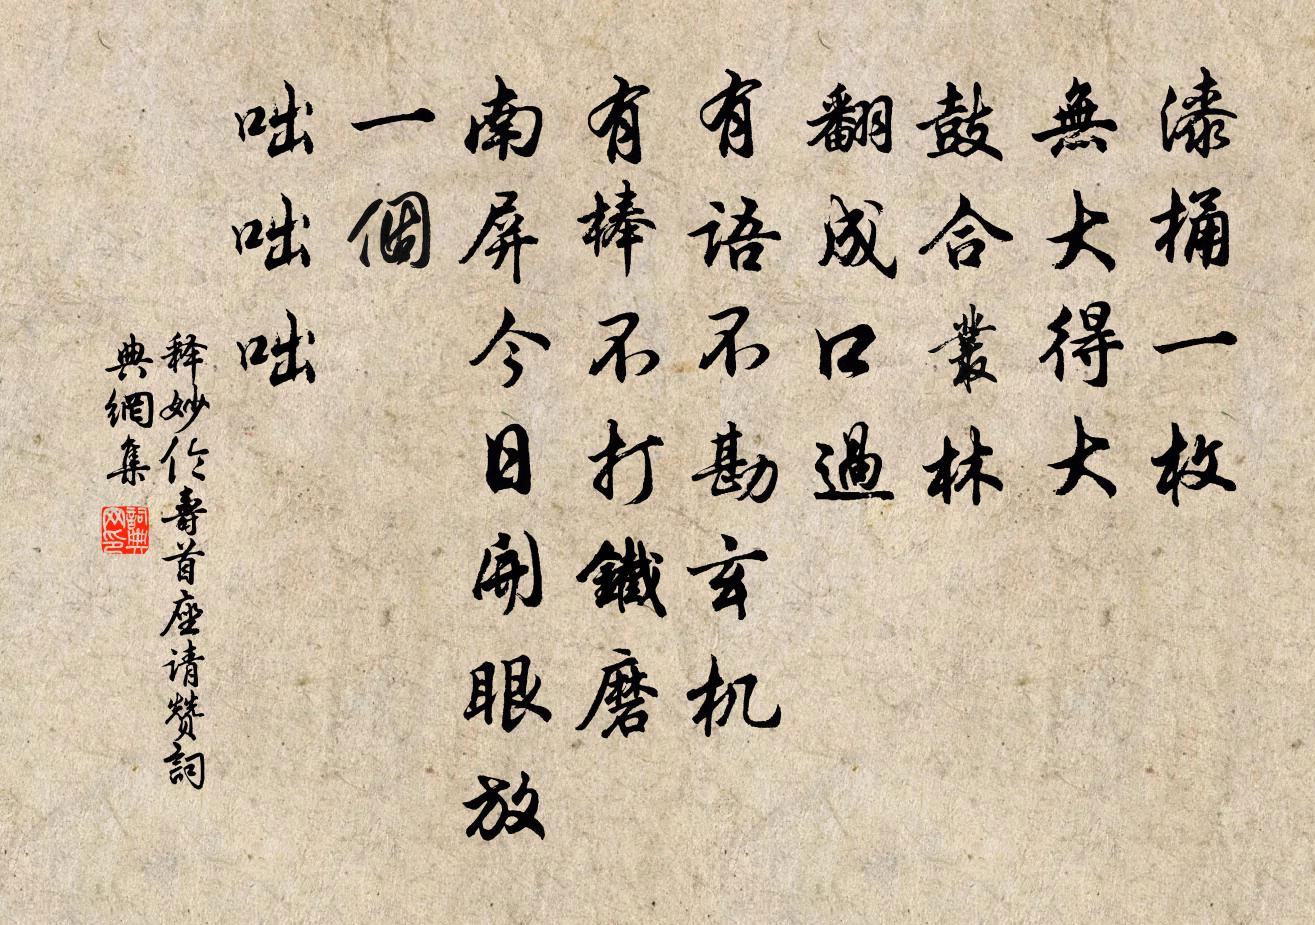 漆桶一枚
無大得大
鼓合叢林
翻成口過
有語不勘玄机
有棒不打鐵磨
南屏今日開眼放
一個
咄咄咄
释妙伦壽首座请赞詞
典網集
詞典网印